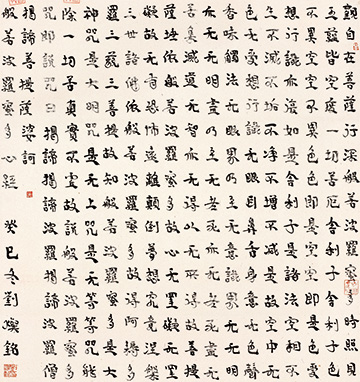 觀自在菩薩行深般若波羅蜜多時照見
五蘊皆空度一切苦厄舍利子色
不異空空不異色色即是空空即是色受
想行識亦復如是舍利子是諸法空相不
生不滅不垢不淨不增不減是故空中无
色无受想行識无眼耳鼻舌身意无色聲
香味觸法无眼界乃至无意識界无无明
亦无无明盡乃至无老死亦无老死盡无
苦集滅道无智亦无得以无所得故菩提
薩埵依般若波羅蜜多故心无罣礙无罣
礙故无有恐怖遠離顛倒夢想究竟涅槃
三世諸佛依般若波羅蜜多故得阿耨多
羅三藐三菩提故知般若波羅蜜多是大
神咒是大明咒是无上咒是无等等咒能
除一切苦真實不虛故說般若波羅蜜多
咒即說咒曰揭諦揭諦波羅揭諦波羅僧
揭諦菩提薩婆訶
般若波羅蜜多心經 癸巳冬劉燦銘